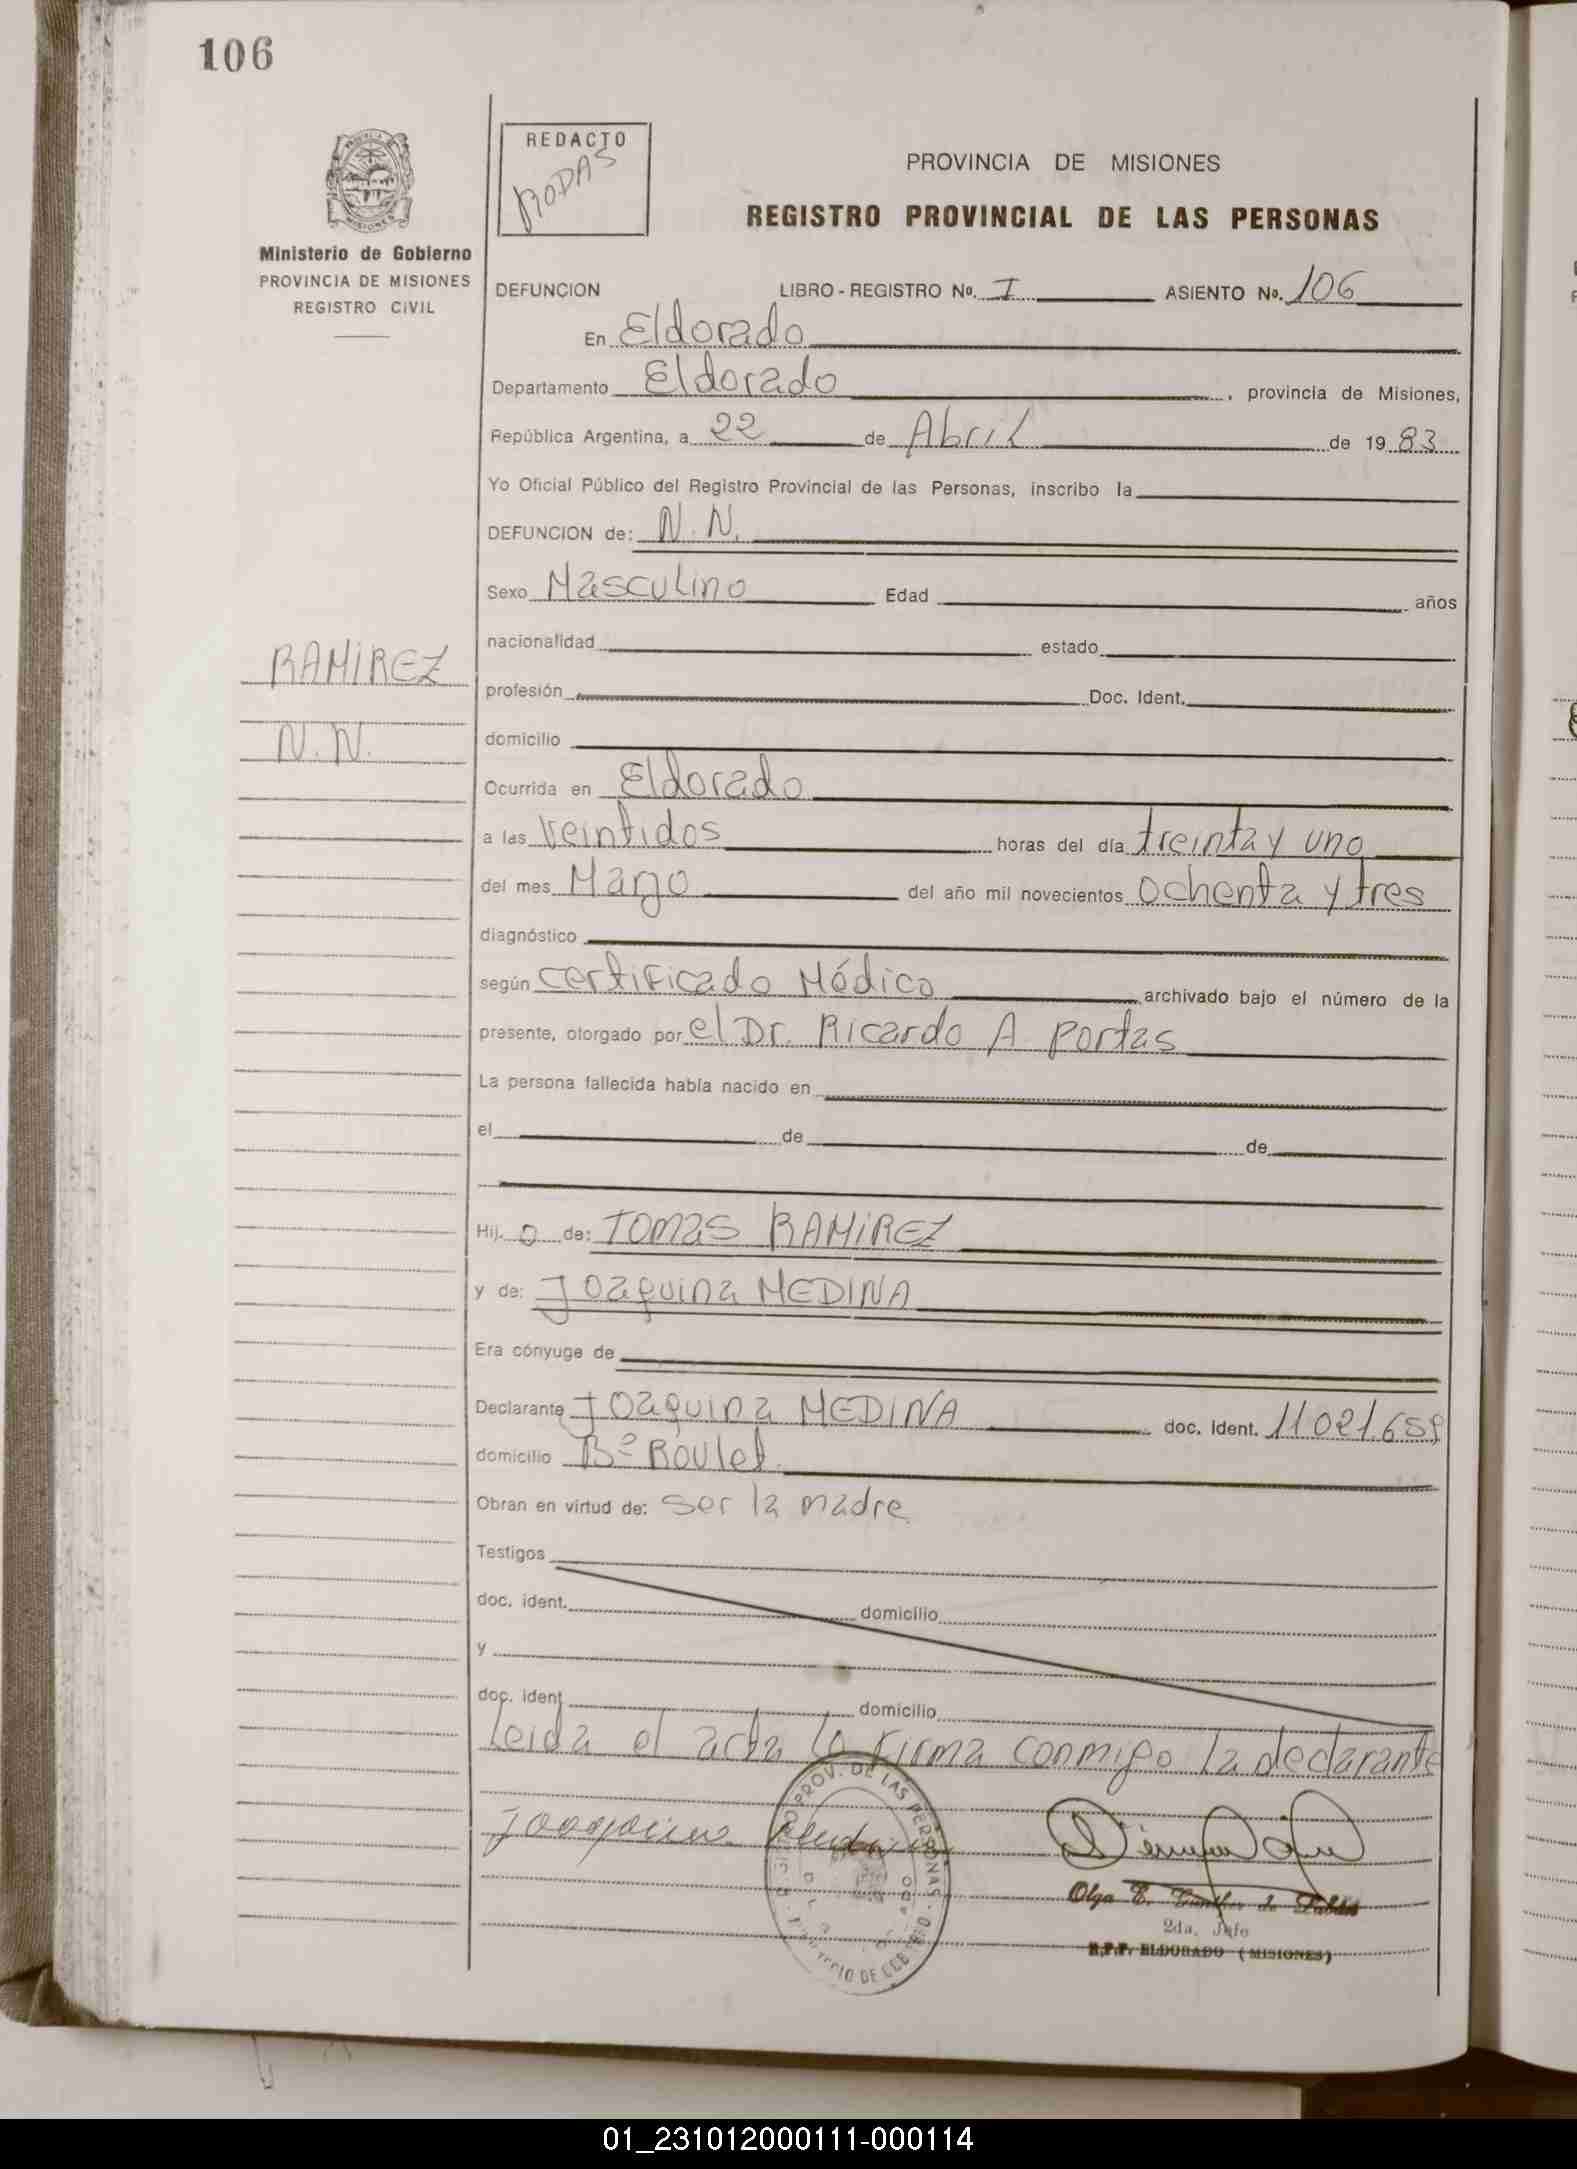 106
REDACTO
RODAS
PROVINCIA DE MISIONES
REGISTRO PROVINCIAL DE LAS PERSONAS
Ministerio de Gobierno
PROVINCIA DE MISIONES
REGISTRO CIVIL
DEFUNCION LIBRO - REGISTRO Nº. I ASIENTO Nº. 106
En Eldorado
Departamento Eldorado, provincia de Misiones,
República Argentina, a 22 de Abril de 1983
Yo Oficial Público del Registro Provincial de las Personas, inscribo la
DEFUNCION de: N. N.
Sexo Masculino Edad años
nacionalidad estado
RAMIREZ
profesión Doc. Ident.
N. N.
domicilio
Ocurrida en Eldorado
a las Veintidos horas del día treinta y uno
del mes Marzo del año mil novecientos ochenta y tres
diagnóstico
según certificado Médico archivado bajo el número de la
presente, otorgado por el Dr. Ricardo A. Portas
La persona fallecida había nacido en
el de de
Hij o de: TOMAS RAMIREZ
y de: Joaquina MEDINA
Era cónyuge de
Declarante Joaquina MEDINA doc. Ident. 11021.659
domicilio Bº Roulet
Obran en virtud de: ser la madre
Testigos
doc. ident. domicilio
y
doc. ident domicilio
Leida el acta la firma conmigo la declarante
PROV. DE LAS PERSONAS
Olga E. de
2da. Jefe
R.P.P. ELDORADO (MISIONES)
01_231012000111-000114